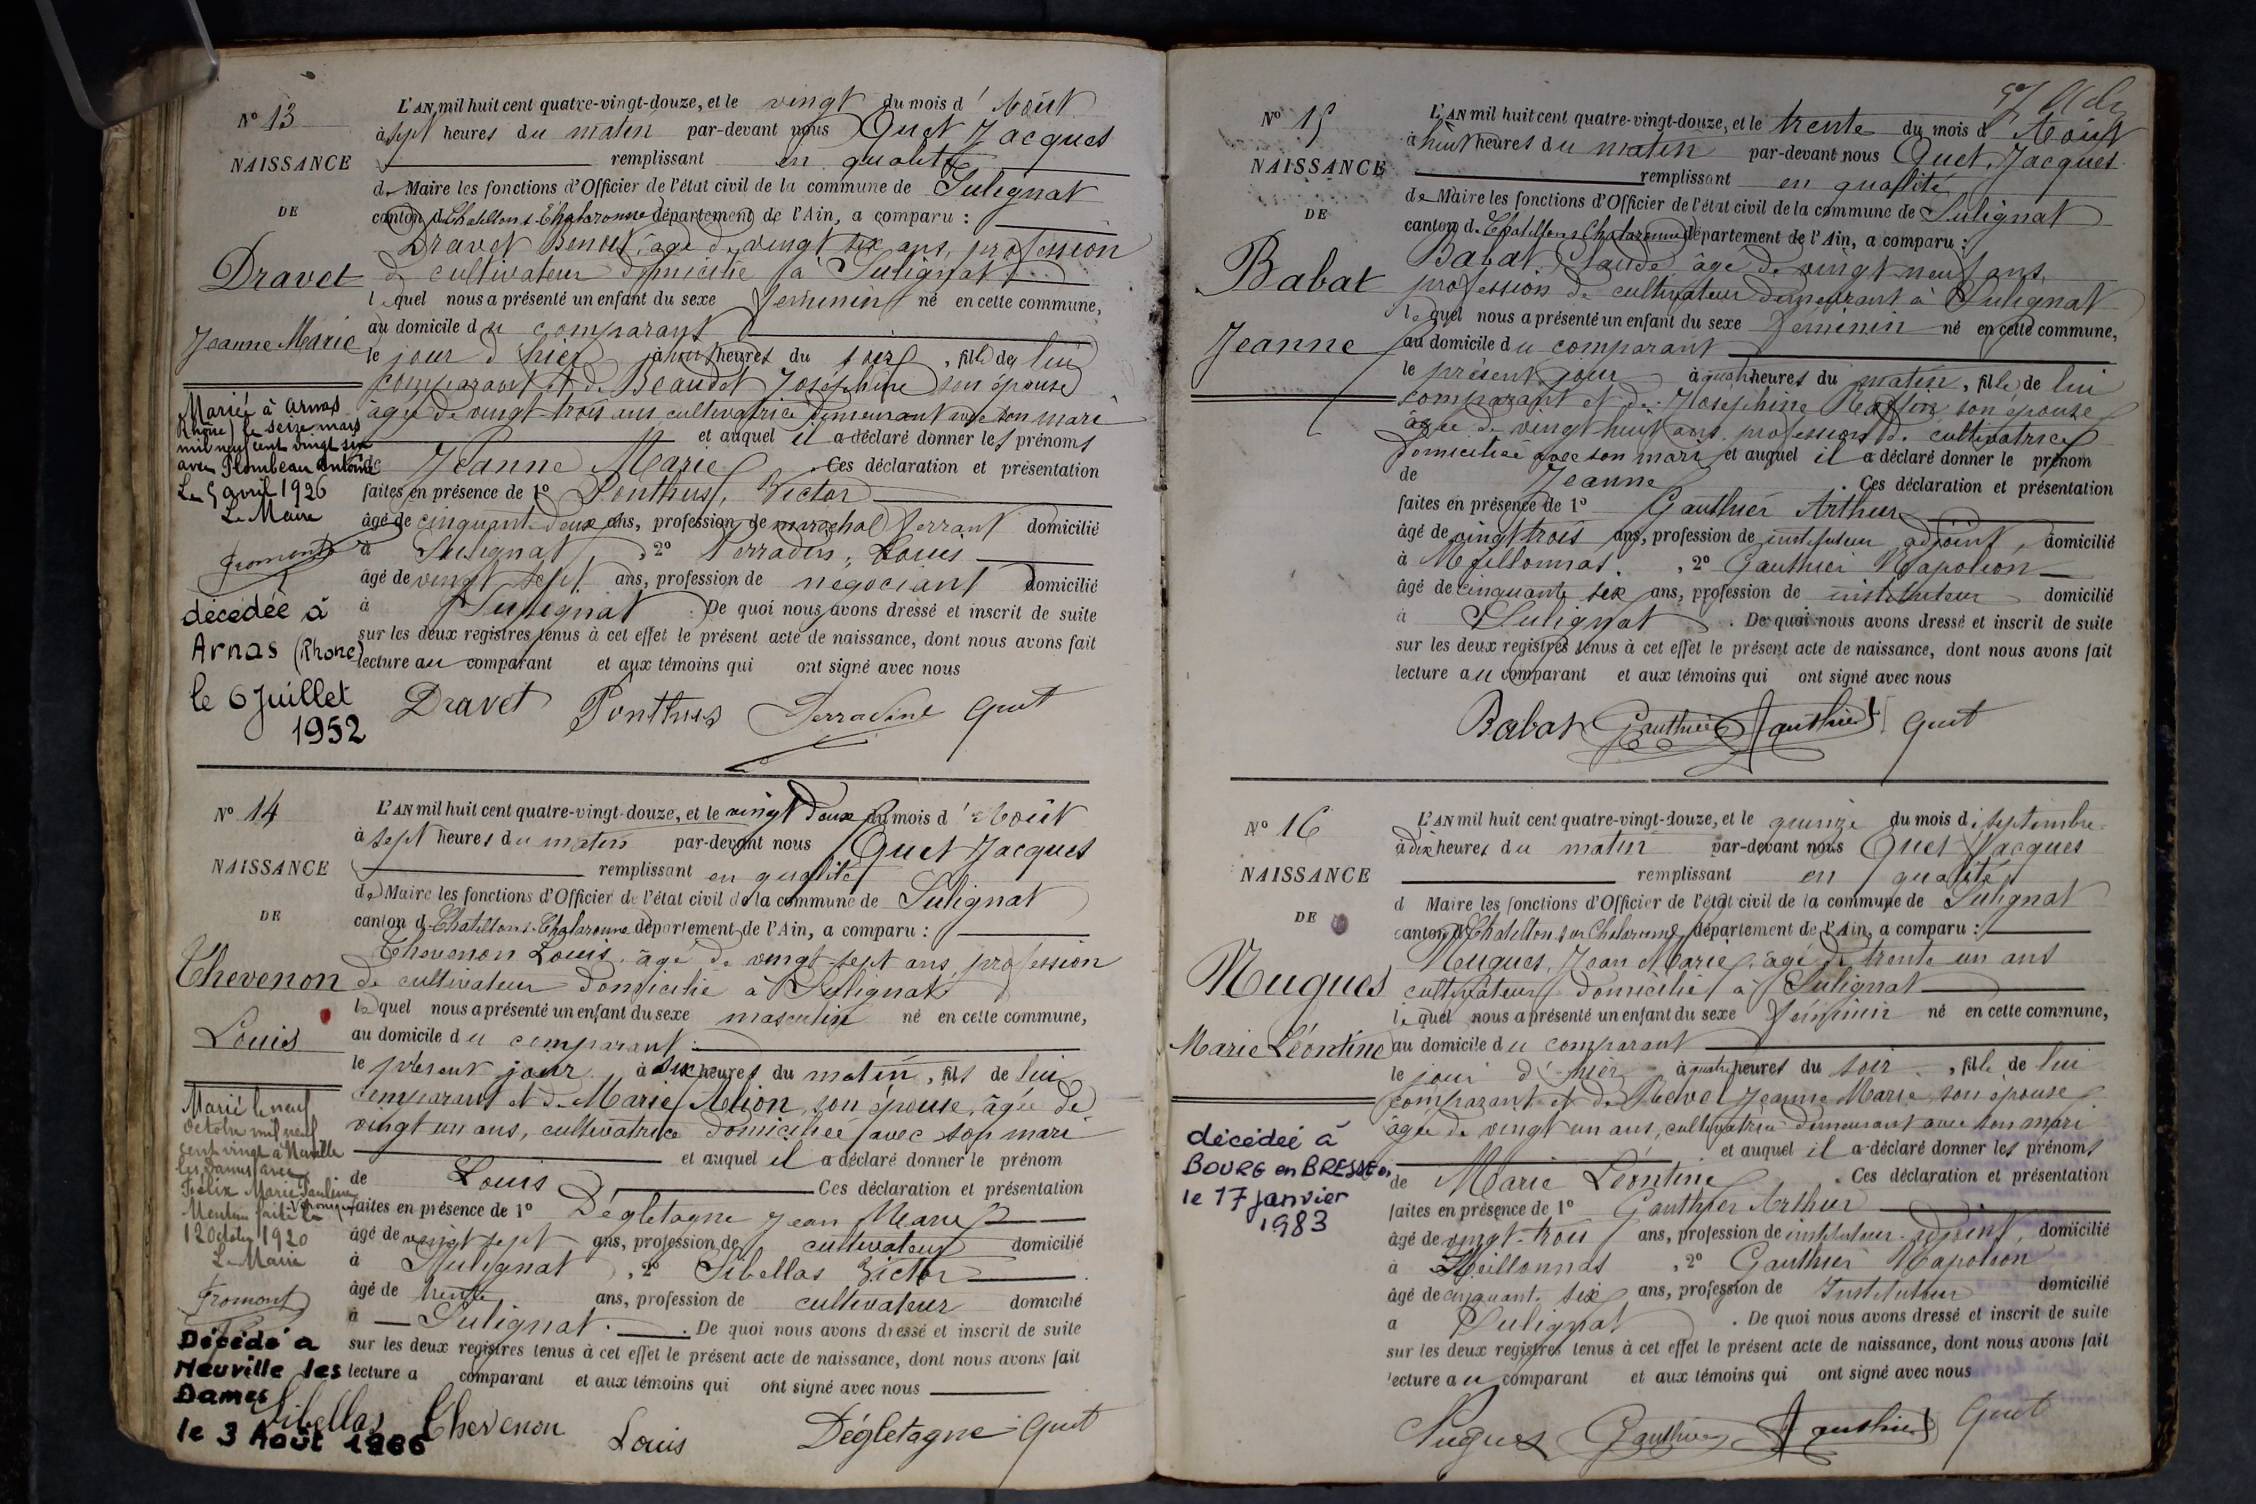 N° 13
NAISSANCE
DE
Dravet
Jeanne Marie
Mariée à Arnas
(Rhône) le seize mars
mil neuf cent vingt six
avec Plombeau Antoine
Le 5 avril 1926
Le Maire
Fromont
décédée à
Arnas (Rhone)
le 6 Juillet
1952
L'AN mil huit cent quatre-vingt-douze, et le vingt du mois d'Août
à sept heures du matin par-devant nous Quet Jacques
remplissant en qualité
de Maire les fonctions d'Officier de l'état civil de la commune de Sulignat
canton de Chatillon s. Chalaronne département de l'Ain, a comparu :
Dravet Benoit, âgé de vingt six ans, profession
de cultivateur domicilié à Sulignat
lequel nous a présenté un enfant du sexe féminin né en cette commune,
au domicile du comparant
le jour d'hier à huit heures du soir, fille de lui
comparant et de Beaudet Joséphine son épouse
âgée de vingt-trois ans cultivatrice demeurant avec son mari
et auquel il a déclaré donner les prénoms
de Jeanne Marie. Ces déclaration et présentation
faites en présence de 1° Ponthus, Victor
âgé de cinquante deux ans, profession de maréchal ferrant domicilié
à Sulignat, 2° Perradin, Louis
âgé de vingt sept ans, profession de négociant domicilié
à Sulignat. De quoi nous avons dressé et inscrit de suite
sur les deux registres tenus à cet effet le présent acte de naissance, dont nous avons fait
lecture au comparant et aux témoins qui ont signé avec nous
Dravet Ponthus Perradin Quet
N° 14
NAISSANCE
DE
Thevenon
Louis
Marié le neuf
octobre mil neuf
cent vingt à Neuville
les Dames avec
Félix Marie Pauline
Véronique
Mention faite le
12 Octobre 1920
Le Maire
Fromont
Décédé a
Neuville les
Dames
le 3 Août 1966
L'AN mil huit cent quatre-vingt-douze, et le vingt deux du mois d'Août
à sept heures du matin par-devant nous Quet Jacques
remplissant en qualité
de Maire les fonctions d'Officier de l'état civil de la commune de Sulignat
canton de Chatillon s. Chalaronne département de l'Ain, a comparu :
Thevenon Louis, âgé de vingt-sept ans, profession
de cultivateur domicilié à Sulignat
lequel nous a présenté un enfant du sexe masculin né en cette commune,
au domicile du comparant
le présent jour à six heures du matin, fils de lui
comparant et de Marie Mion, son épouse, âgée de
vingt un ans, cultivatrice domiciliée avec son mari
et auquel il a déclaré donner le prénom
de Louis Ces déclaration et présentation
faites en présence de 1° Dégletagne Jean Marie
âgé de vingt sept ans, profession de cultivateur domicilié
à Sulignat, 2° Sibellas Victor
âgé de trente ans, profession de cultivateur domicilié
à Sulignat. De quoi nous avons dressé et inscrit de suite
sur les deux registres tenus à cet effet le présent acte de naissance, dont nous avons fait
lecture a comparant et aux témoins qui ont signé avec nous
Sibellas Thevenon Louis Dégletagne Quet
N° 15
NAISSANCE
DE
Babat
Jeanne
L'AN mil huit cent quatre-vingt-douze, et le trente du mois d'Août
à huit heures du matin par-devant nous Quet, Jacques
remplissant en qualité
de Maire les fonctions d'Officier de l'état civil de la commune de Sulignat
canton de Chatillon s. Chalaronne département de l'Ain, a comparu :
Babat Claude âgé de vingt neuf ans,
profession de cultivateur demeurant à Sulignat
lequel nous a présenté un enfant du sexe féminin né en cette commune,
au domicile du comparant
le présent jour à quatre heures du matin, fille de lui
comparant et de Joséphine son épouse
âgée de vingt-huit ans, profession de cultivatrice
domiciliée avec son mari et auquel il a déclaré donner le prénom
de Jeanne. Ces déclaration et présentation
faites en présence de 1° Gauthier Arthur
âgé de vingt trois ans, profession de instituteur adjoint, domicilié
à Meillonnas, 2° Gauthier Napoléon
âgé de cinquante six ans, profession de instituteur domicilié
à Sulignat. De quoi nous avons dressé et inscrit de suite
sur les deux registres tenus à cet effet le présent acte de naissance, dont nous avons fait
lecture au comparant et aux témoins qui ont signé avec nous
Babat Gauthier A Gauthier Quet
N° 16
NAISSANCE
DE
Nugues
Marie Léontine
décédée à
BOURG en BRESSE
le 17 janvier
1983
L'AN mil huit cent quatre-vingt-douze, et le quinze du mois de septembre
à dix heures du matin par-devant nous Quet Jacques
remplissant en qualité
d Maire les fonctions d'Officier de l'état civil de la commune de Sulignat
canton de Chatillon sur Chalaronne département de l'Ain, a comparu :
Nugues, Jean Marie, âgé de trente un ans
cultivateur domicilié à Sulignat
lequel nous a présenté un enfant du sexe féminin né en cette commune,
au domicile du comparant
le jour d'hier à quatre heures du soir, fille de lui
comparant et de Revel Jeanne Marie son épouse
âgée de vingt un ans, cultivatrice demeurant avec son mari
et auquel il a déclaré donner les prénoms
de Marie Léontine. Ces déclaration et présentation
faites en présence de 1° Gauthier Arthur
âgé de vingt-trois ans, profession de instituteur adjoint, domicilié
à Meillonnas, 2° Gauthier Napoléon
âgé de cinquante six ans, profession de Instituteur domicilié
à Sulignat. De quoi nous avons dressé et inscrit de suite
sur les deux registres tenus à cet effet le présent acte de naissance, dont nous avons fait
lecture au comparant et aux témoins qui ont signé avec nous
Nugues Gauthier A Gauthier Quet